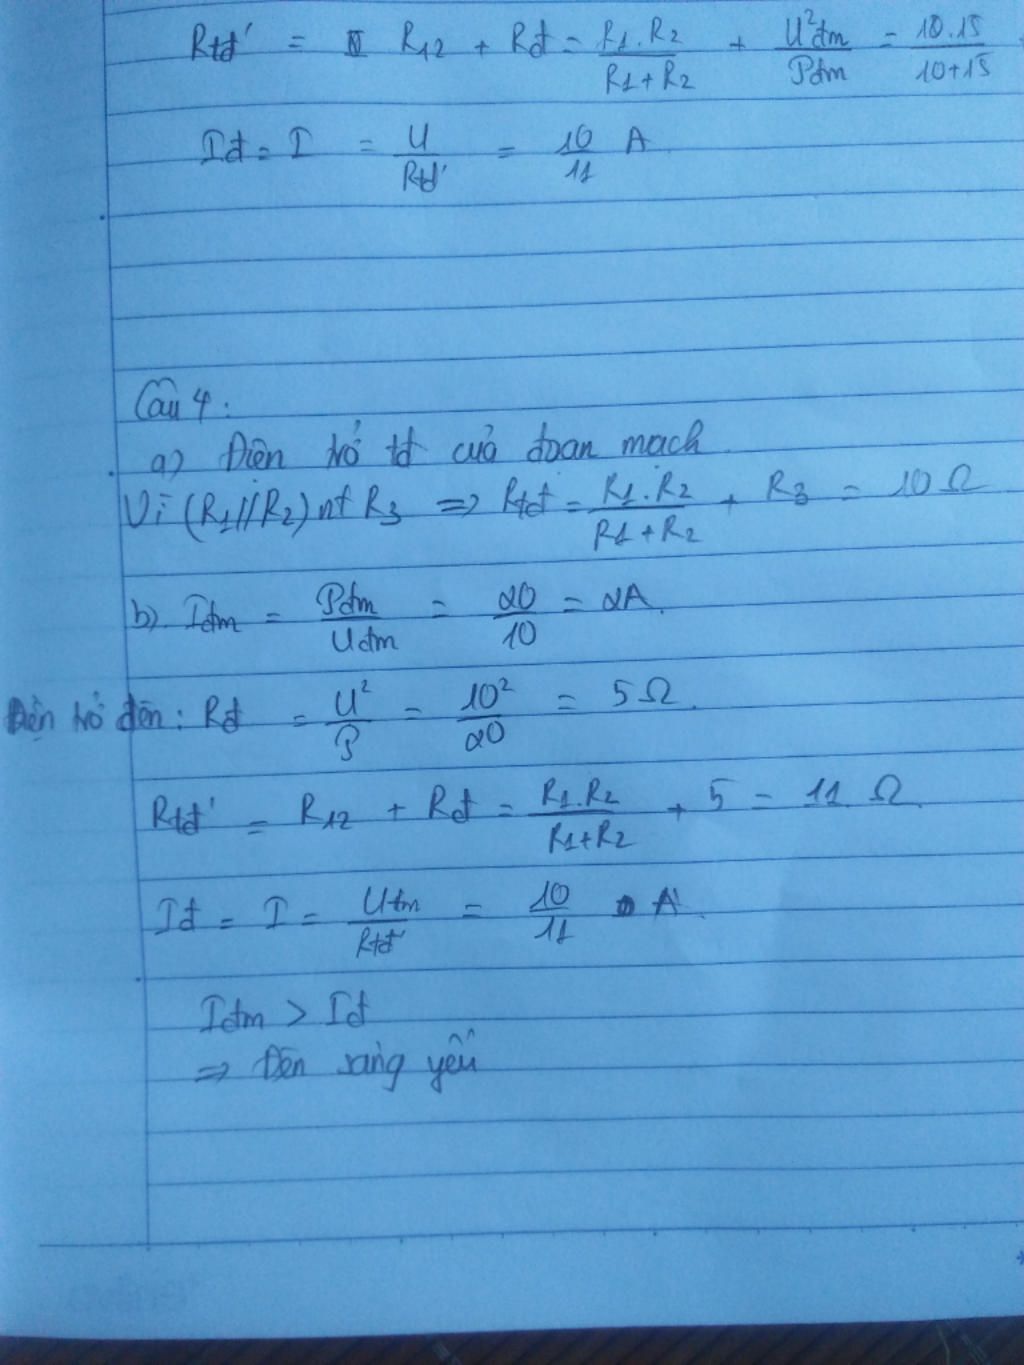 Rtđ' = R12 + Rđ = R1.R2/R1+R2 + U²đm/Pđm = 10.15/10+15
Iđ = I = U/Rtđ' = 10/11 A
Câu 4:
a) Điện trở tđ của đoạn mạch
Vì (R1//R2) nt R3 => Rtđ = R1.R2/R1+R2 + R3 = 10 Ω
b). Iđm = Pđm/Uđm = 20/10 = 2A.
Điện trở đèn: Rđ = U²/P = 10²/20 = 5 Ω.
Rtđ' = R12 + Rđ = R1.R2/R1+R2 + 5 = 11 Ω.
Iđ = I = Utm/Rtđ' = 10/11 A.
Iđm > Iđ
=> Đèn sáng yếu